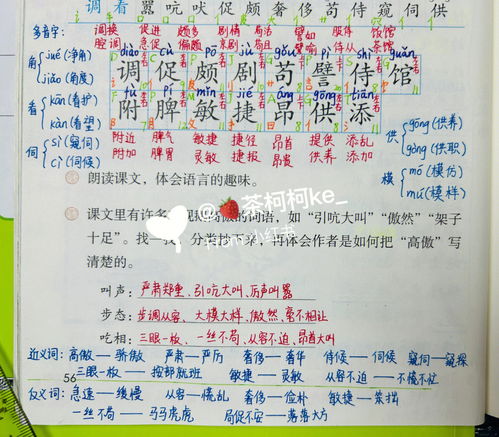 调看嚣吭吠促颇奢侈苟侍窥伺供
多音字：调换 促进 颇多 剧情 苟活 譬如 服侍 饭馆
腔调 急促 偏颇 京剧 苟且 譬喻 侍从 茶馆
diào cù pō jù gǒu pì shì guǎn
调促颇剧苟譬侍馆
fù pí mǐn jié áng gōng tiān
附脾敏捷昂供添
角 jué（净角）
jiǎo（角度）
看 kān（看护）
kàn（看望）
伺 sì（窥伺）
cì（伺候）
供 gōng（供养）
gòng（供职）
模 mó（模仿）
mú（模样）
附近 脾气 敏捷 捷径 昂首 提供 添乱
附加 脾胃 灵敏 捷报 昂贵 供养 添加
朗读课文，体会语言的趣味。
@🍓茶柯柯ke_
小红书
课文里有许多 现 高傲的词语，如“引吭大叫”“傲然”“架子
十足”。找一找，分类抄下来，再体会作者是如何把“高傲”写
清楚的。
叫声：严肃郑重、引吭大叫、厉声叫嚣
步态：步调从容、大模大样、傲然、毫不相让
吃相：三眼一板、一丝不苟、从容不迫、昂首大叫
近义词：高傲—骄傲 严肃—严厉 奢侈—奢华 侍候—伺候 窥伺—窥探
三眼一板—按部就班 敏捷—灵敏 从容不迫—不慌不忙
56
反义词：急速—缓慢 从容—慌乱 奢侈—俭朴 敏捷—笨拙
一丝不苟—马马虎虎 局促不安—落落大方